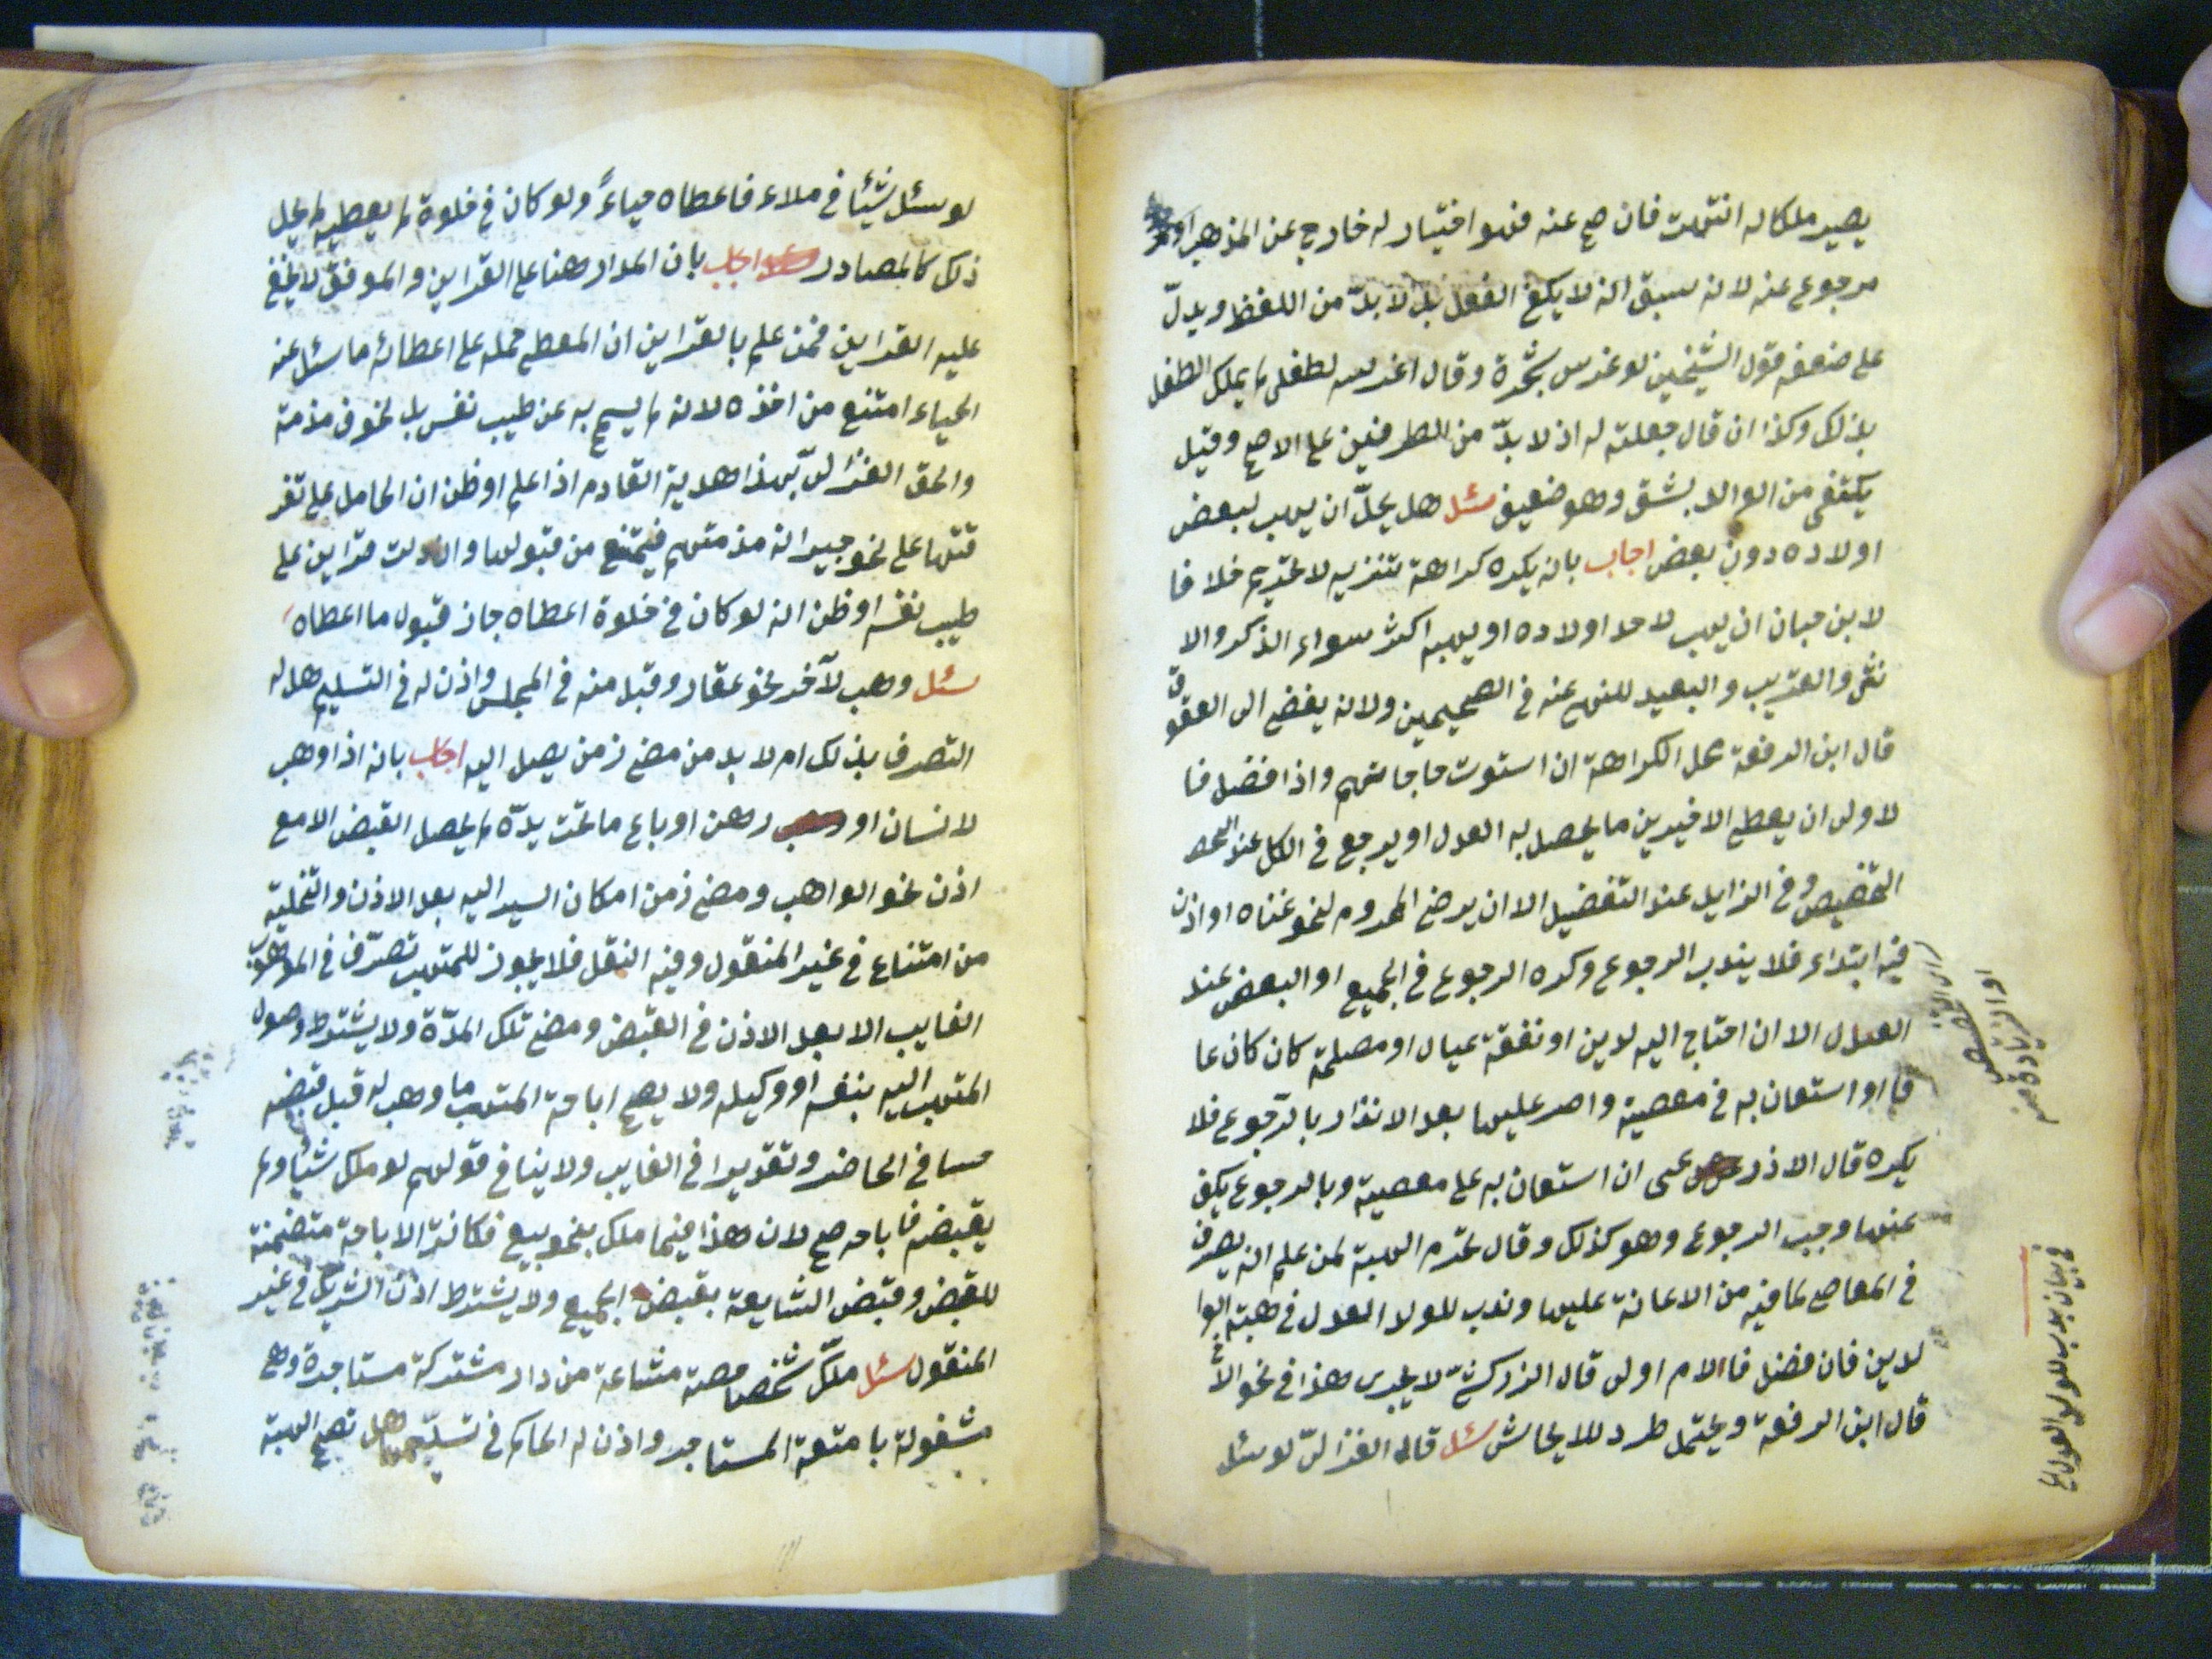 يصير ملكا له انتهت فان صح عنه فهو اختيار له خارج عن المذهب او
مرجوع عنه لانه سبق انه لا يكفى الفعل بل لا بدّ من اللفظ ويدلّ
على ضعفه قول الشيخين لو غرس شجرة وقال اغرسه لطفلى لم يملك الطفل
بذلك وكذا ان قال جعلته له اذ لا بدّ من الطرفين على الاصح وقيل
يكتفى من الوالد بشق وهو ضعيف سئل هل يحلّ ان يهب لبعض
اولاده دون بعض اجاب بانه يكره كراهة تنزيه لا تحريم خلا فا
لابن حبان ان يهب لاحد اولاده او يهبه اكثر سواء الذكر والا
نثى والقريب والبعيد للنهى عنه فى الصحيحين ولانه يفضى الى العقوق
قال ابن الرفعة محل الكراهة ان استوت حاجاتهم واذا فضل فا
لاولى ان يعطى الاخيرين ما يحصل به العدل او يرجع فى الكل عند
التخصيص وفى الزايد عند التفضيل الا ان يرضى المحروم لنحو غناه او اذن
فيه ابتداء فلا يندب الرجوع وكره الرجوع فى الجميع او البعض عند
العدل الا ان احتاج اليه لدين او نفقة عيال او مصلحة كان كان عا
قا او استعان به فى معصية واصر عليها بعد الانذار بالرّجوع فلا
يكره قال الاذرعى ان استعان به على معصية وبالرجوع يكف
عنها وجب الرجوع وهو كذلك وقال تحرم الهبة لمن علم انه يصرف
فى المعاصى لما فيه من الاعانة عليها وندب للولد العدل فى هبته الوا
لدين فان فضل فالام اولى قال الزركشىّ لا يجرى هذا فى نحو الاخ
قال ابن الرفعة ويحتمل طرد للايحاش سئل قال الغزالىّ لو سئل
فى بيان ندب للولد العدل الخ
لو سئل شيئا فى ملاء فاعطاه حياءً ولو كان فى خلوة لم يعطيه لم يحل
ذلك كالمصادر اجاب بان المدار هنا على القراين والموفق لا يخفى
عليه القراين فمن علم بالقراين ان المعطى حمله على اعطائه ما سئل عنه
الحياء امتنع من اخذه لانه لم يسمح به عن طيب نفس بل لخوف مذمة
والحق الغزالىّ بهذا هدية القادم اذا علم او ظن ان الحامل على تفر
قتها على نحو جيرانه مذمتهم فيمتنع من قبولها وان دلت قراين على
طيب نفسه او ظن انه لو كان فى خلوة اعطاه جاز قبول ما اعطاه
سئل وهب لآخر نحو عقار وقبل منه فى المجلس واذن له فى التسليم هل له
التصرف بذلك ام لا بد من مضى زمن يصل اليه اجاب بانه اذا وهب
لانسان او رهن او باع ما تحت يدّه لم يحصل القبض الا مع
اذن نحو الواهب ومضى زمن امكان السير اليه بعد الاذن والتخلية
من امتناع فى غير المنقول وفيه النقل فلا يجوز للمتهب تصرّف فى الموهوب
الغايب الا بعد الاذن فى القبض ومضى تلك المدّة ولا يشترط وصول
المتهب اليه بنفسه او وكيله ولا يصح اباحة المتهب ما وهب له قبل قبضه
حسا فى الحاضر وتقديرا فى الغايب ولا ينافى قولهم لو ملك شيئا ولم
يقبضه فاباحه صح لان هذا فيما ملك بنحو بيع فكانت الاباحة متضمنة
للقبض وقبض الشايعة بقبض الجميع ولا يشترط اذن الشريك فى غير
المنقول سئل ملّك شخصا حصة مشاعة من دار مشتركة مستاجرة وهى
مشغولة بامتعة المستاجر واذن له الحاكم فى تسلّمها هل تصح الهبة